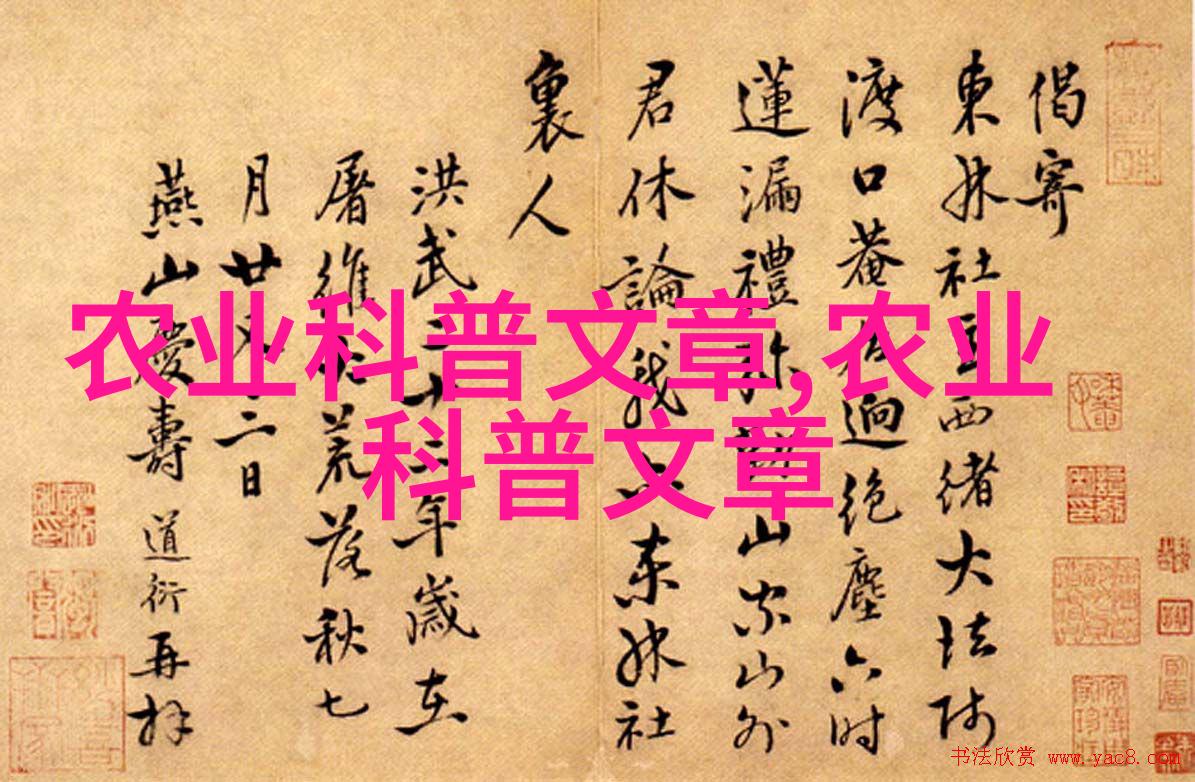 偈寄
東林社西緒大法師
渡口菴迥絶塵六時
蓮漏禮山家山外
君休論我東林社
裏人
洪武二十二年歲在
屠維荒落秋七
月廿二日
燕山慶壽道衍再拜
农业科普文章,农业
科普文章
书法欣赏 www.yac8.com